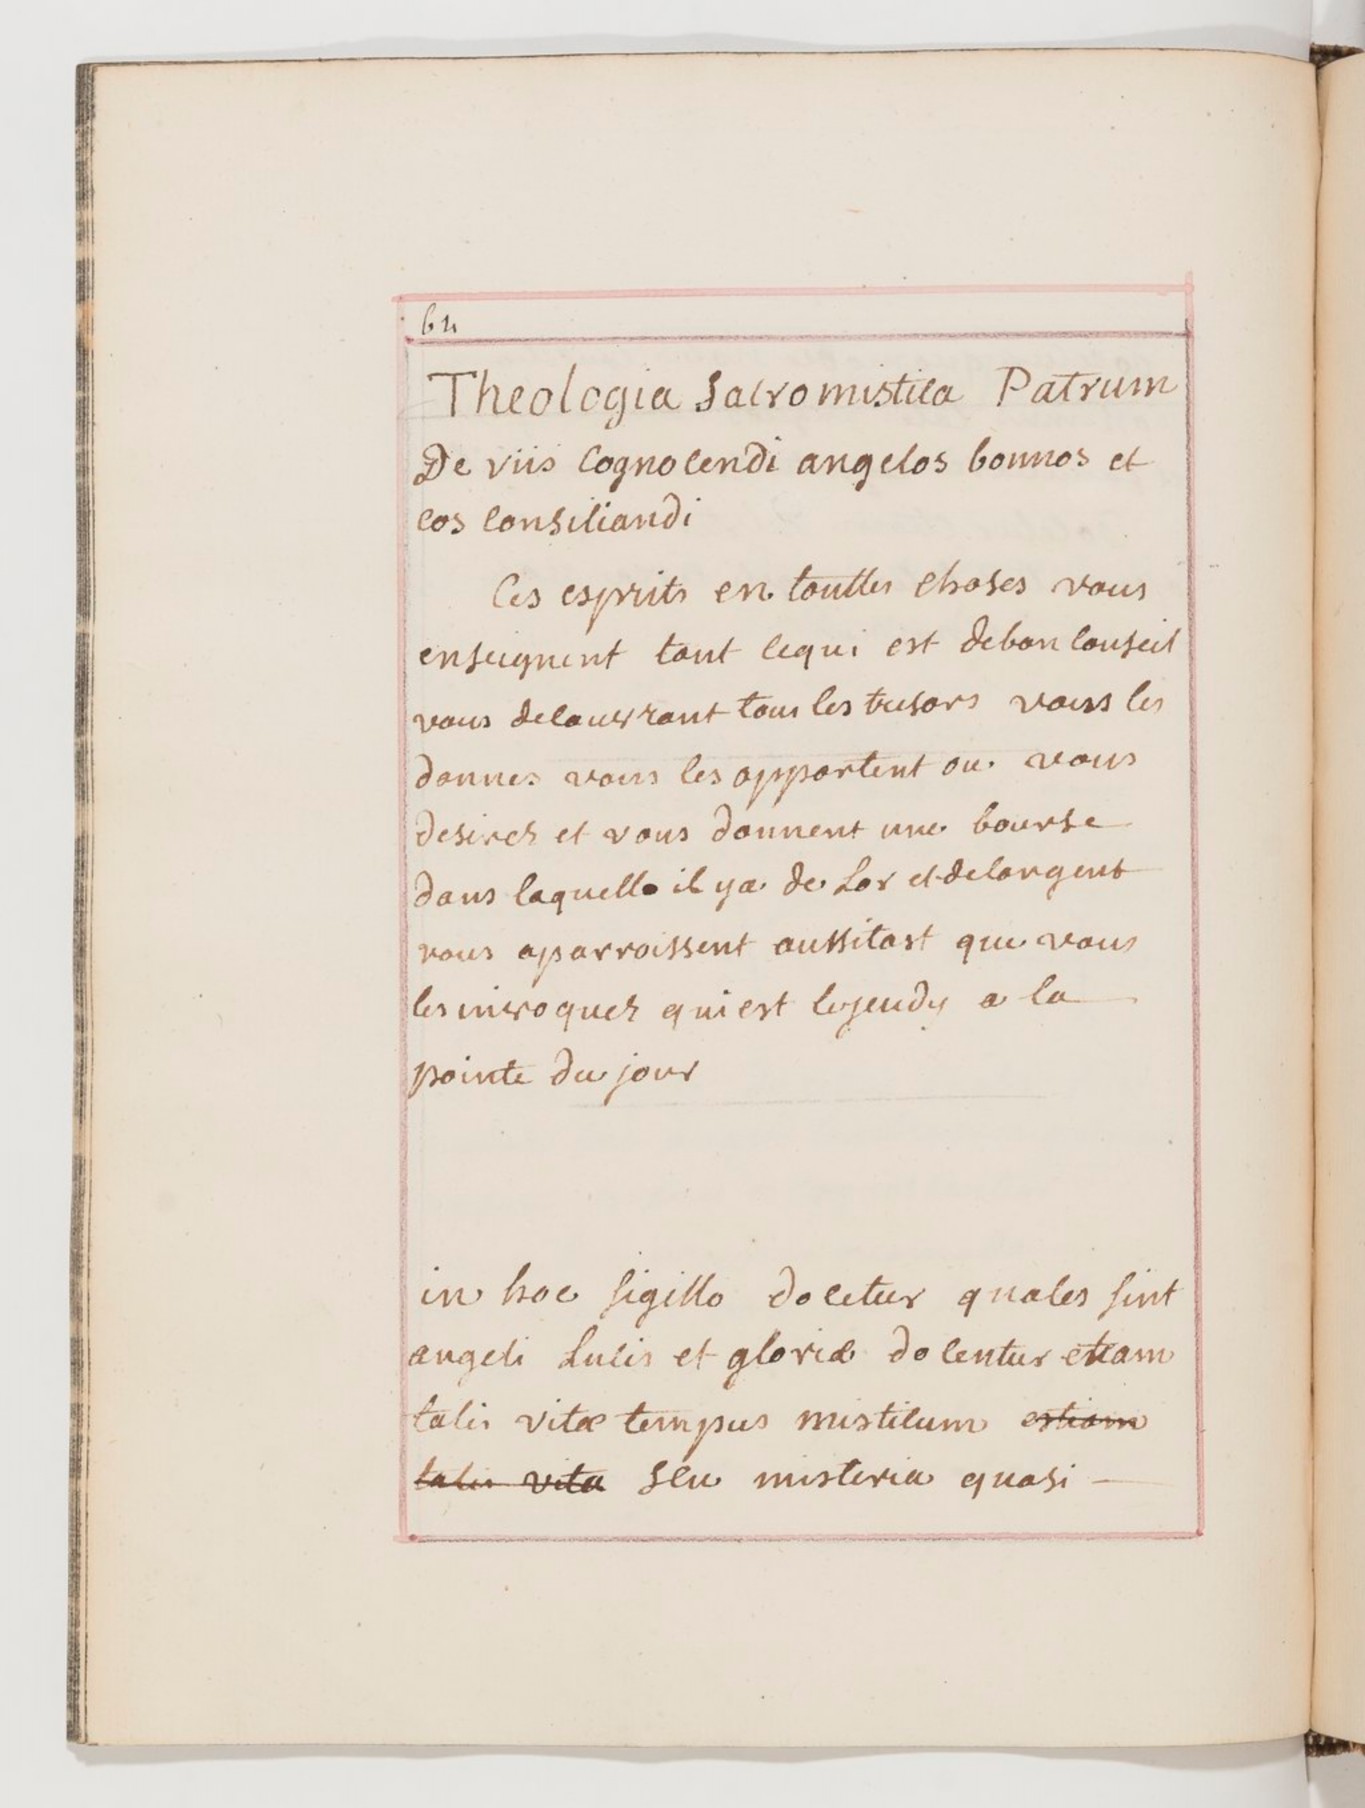 64
Theologia Sacromistica Patrum
De viis Cognocendi angelos bonnos et
eos consiliandi
Ces esprits en touttes choses vous
enseignent tout cequi est debon conseil
vous decouvrant tous les tresors vous les
donnes vous les apportent ou vous
desirez et vous donnent une bourse
dans laquelle il ya de Lor et delargent
vous aparroissent aussitost que vous
les invoquez qui est lejeudy a la
pointe du jour
in hoc sigillo docetur quales sint
angeli Lucis et gloriæ docentur etiam
talis vitæ tempus misticum estiam
talis vita seu misteria quasi —